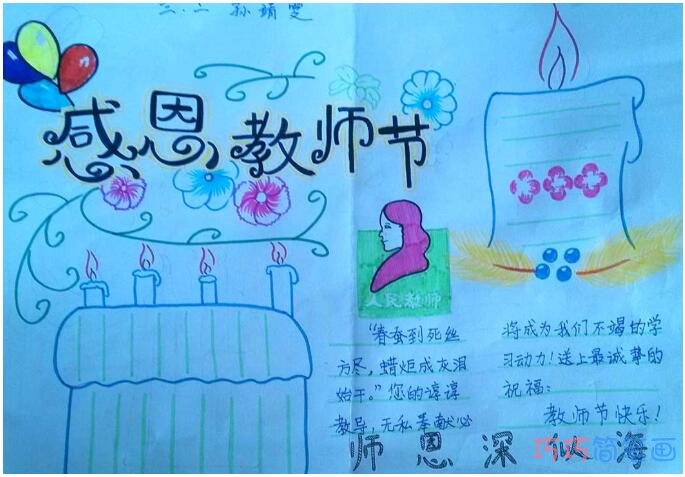 三.二 孙靖雯
感恩教师节
人民教师
"春蚕到死丝
方尽，蜡炬成灰泪
始干。"您的谆谆
教导，无私奉献必
将成为我们不竭的学
习动力！送上最诚挚的
祝福：
教师节快乐！
师恩深似海
巧巧简笔画